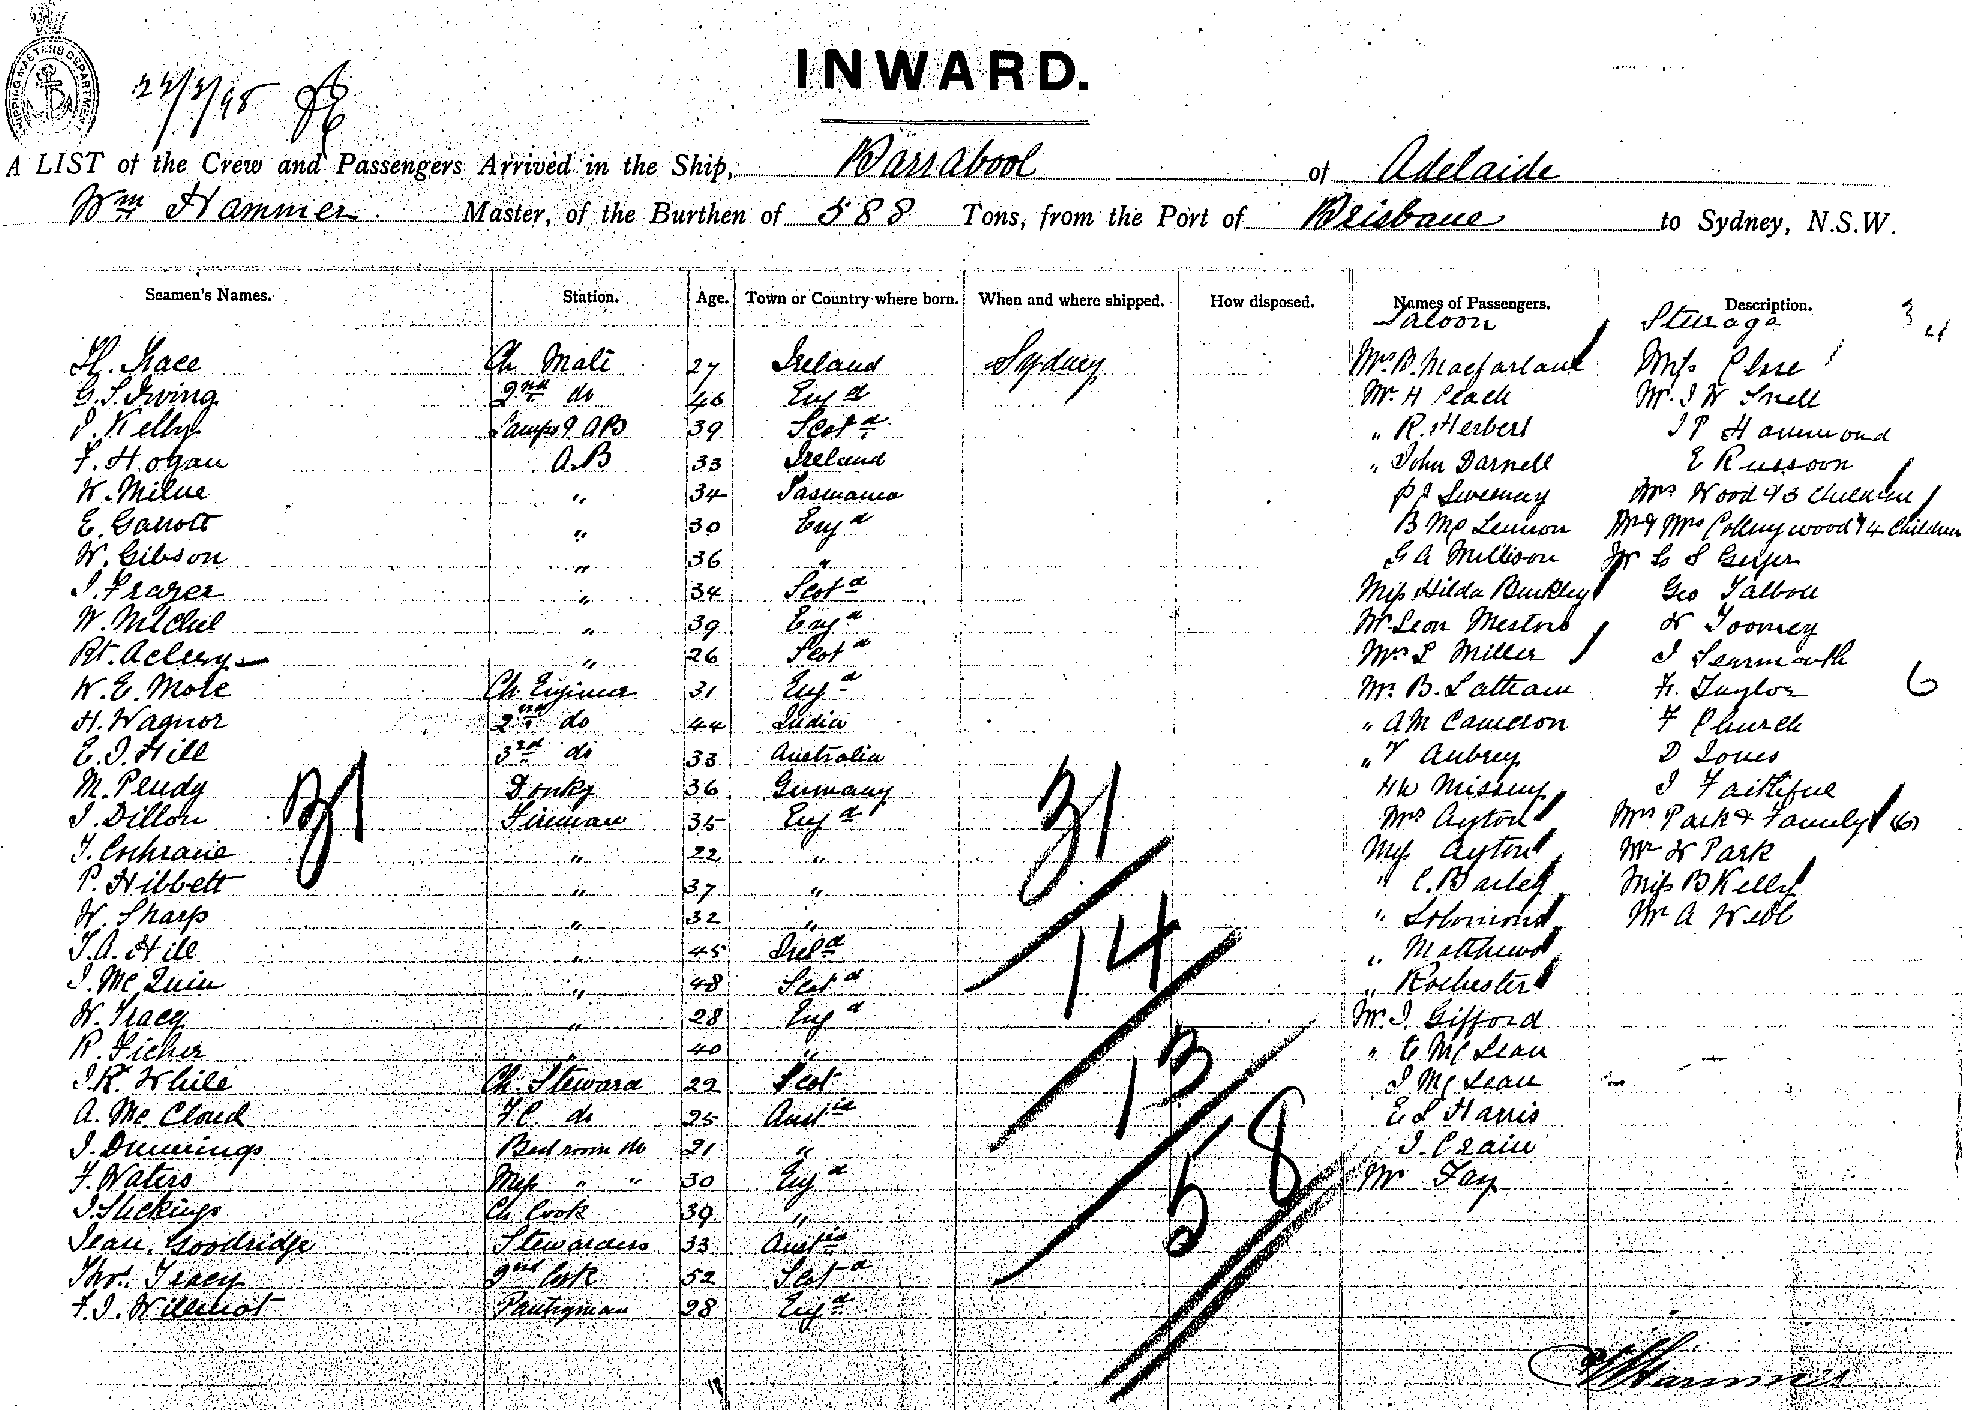 SHIPPING MASTERS DEPARTMENT
INWARD.
22/3/98
A LIST of the Crew and Passengers Arrived in the Ship, Barrabool of Adelaide
Wm Hammer Master, of the Burthen of 588 Tons, from the Port of Brisbane to Sydney, N.S.W.
Seamen's Names. Station. Age. Town or Country where born. When and where shipped. How disposed. Names of Passengers. Description.
Saloon Steerage 3 4
H. Grace Ch Mate 27 Ireland Sydney Mrs B. Macfarlane Miss Close
G.S. Irving 2nd do 46 Engd Mr H Peach Mr. J W Snell
J. Kelly Lamps & AB 39 Scotd " R. Herbert J P Hammond
F. Hogan A.B 33 Ireland " John Darnell E Russoon
W. Milne " 34 Tasmania P J Sweeney Mrs Wood & 3 Children
E. Garrott " 30 Engd B McLennon Mr & Mrs Collingwood & 4 Children
W. Gibson " 36 " G A Millison Mr
J. Frazer " 34 Scotd Miss Hilda Buckley Geo Talbot
W. Michel " 39 Engd Mr Leon Mestors W Toomey
Rt. " 26 Scotd Mrs L Miller J Learmonth
W. E. Mole Ch Engineer 31 Engd Mr. B. Latham F. Taylor 6
H. Wagnor 2nd do 44 India " A M Cameron F Church
E. J. Hill 3rd do 33 Australia " V Aubrey D Jones
M. Pendy Donky 36 Germany H W J Faithful
J. Dillon Fireman 35 Engd Mrs Ayton Mrs Park & Family (6)
31 31
T. Cochrane " 22 " Miss Ayton Mr W Park
P. Hibbett " 37 " " C. Bailey Miss B Kelly
W. Sharp " 32 " " Solomons Mr A Webb
14
T. A. Hill " 45 Ireld " Matthews
J. McQuin " 48 Scotd " Rochester
W. Tracy " 28 Engd Mr. J. Gifford
R. Ficher " 40 " " C McLean
13
J. R. White Ch. Steward 29 Scot J McLean
A. McCloud F.C. do 25 Austia E S Harris
58
J. Dunnings Bedroom do 21 " J. Crain
F. Waters Mess " " 30 Engd Mr Fay
J Stickings Ch Cook 39 "
Jean. Goodridge Stewardess 33 Austia
Thos. Tracy 2nd Cook 52 Scotd
F. J. Willmot Pantryman 28 Engd
W Hammer